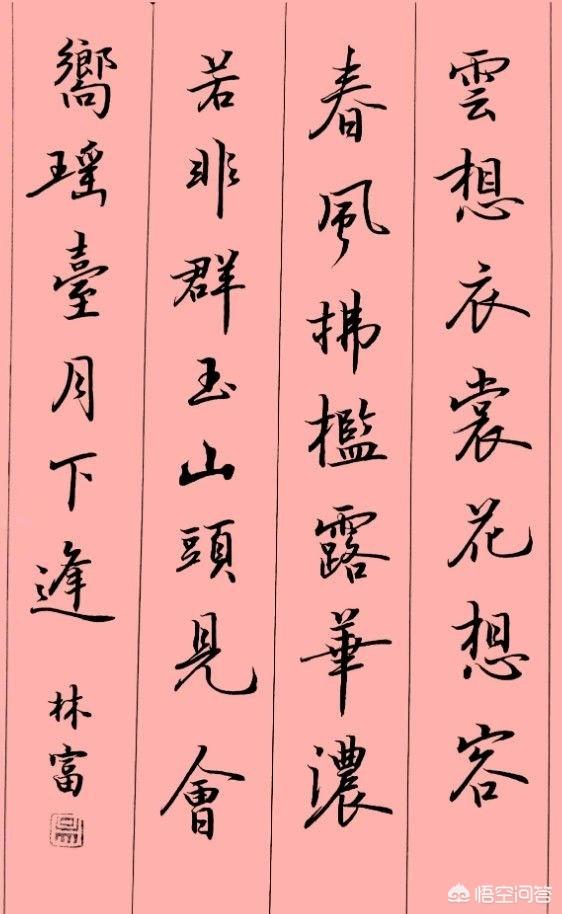 雲想衣裳花想容
春風拂檻露華濃
若非群玉山頭見會
嚮瑶臺月下逢
林富
悟空问答